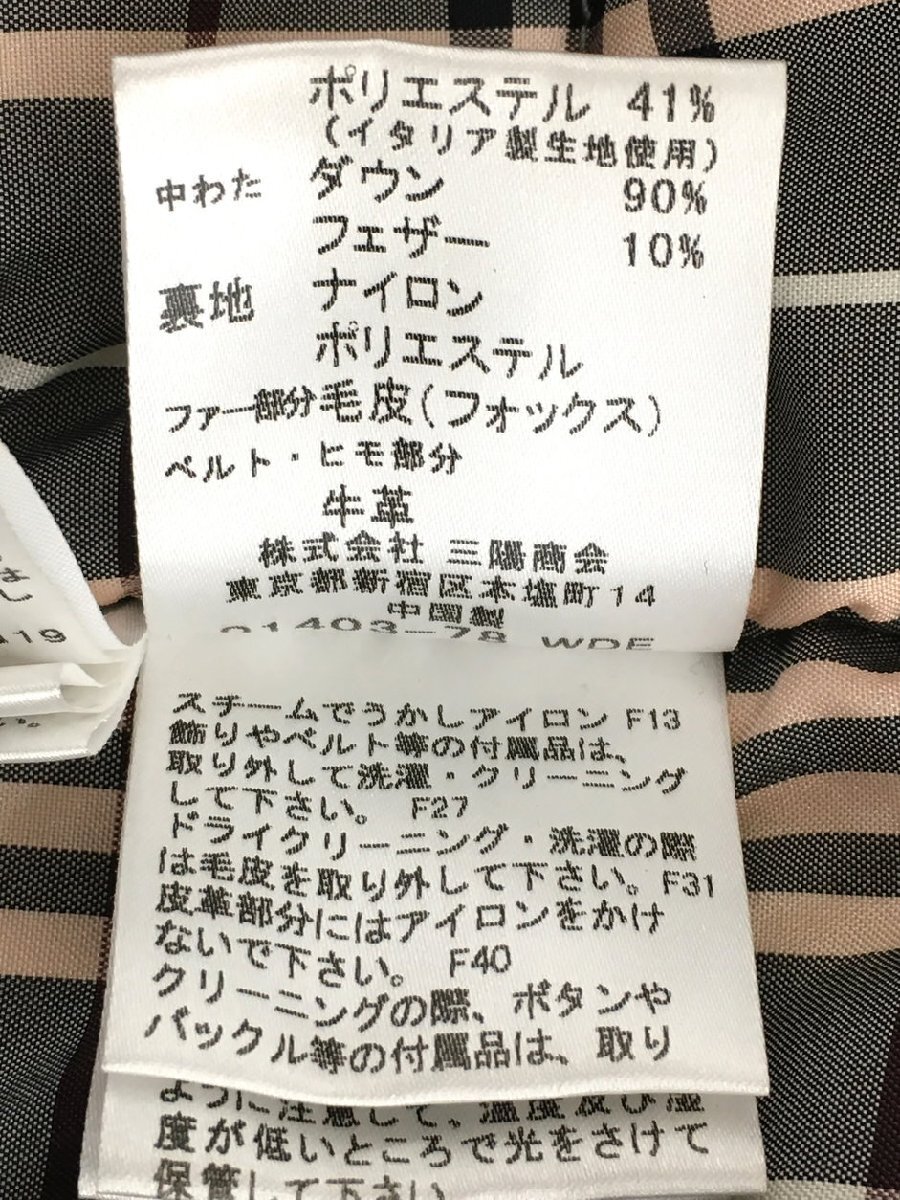 ポリエステル 41%
(イタリア製生地使用)
中わた ダウン 90%
フェザー 10%
裏地 ナイロン
ポリエステル
ファー部分毛皮(フォックス)
ベルト・ヒモ部分
牛革
株式会社 三陽商会
東京都新宿区本塩町14
中国製
01403-78 WDE
スチームでうかしアイロン F13
飾りやベルト等の付属品は、
取り外して洗濯・クリーニング
して下さい。 F27
ドライクリーニング・洗濯の際
は毛皮を取り外して下さい。F31
皮革部分にはアイロンをかけ
ないで下さい。 F40
クリーニングの際、ボタンや
バックル等の付属品は、取り
ように注意して、温度及び湿
度が低いところで光をさけて
保管して下さい。
は
し
419
%